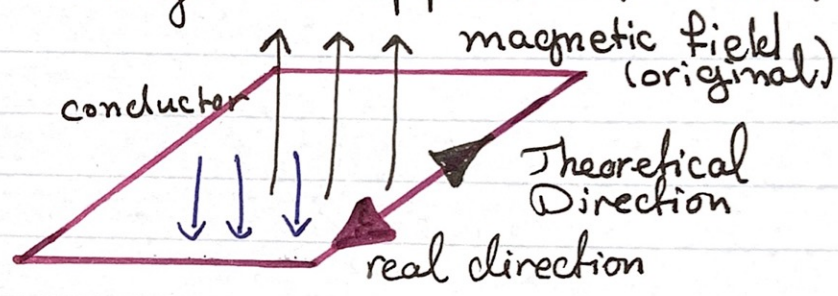 magnetic field
(original)
conductor
Theoretical
Direction
real direction